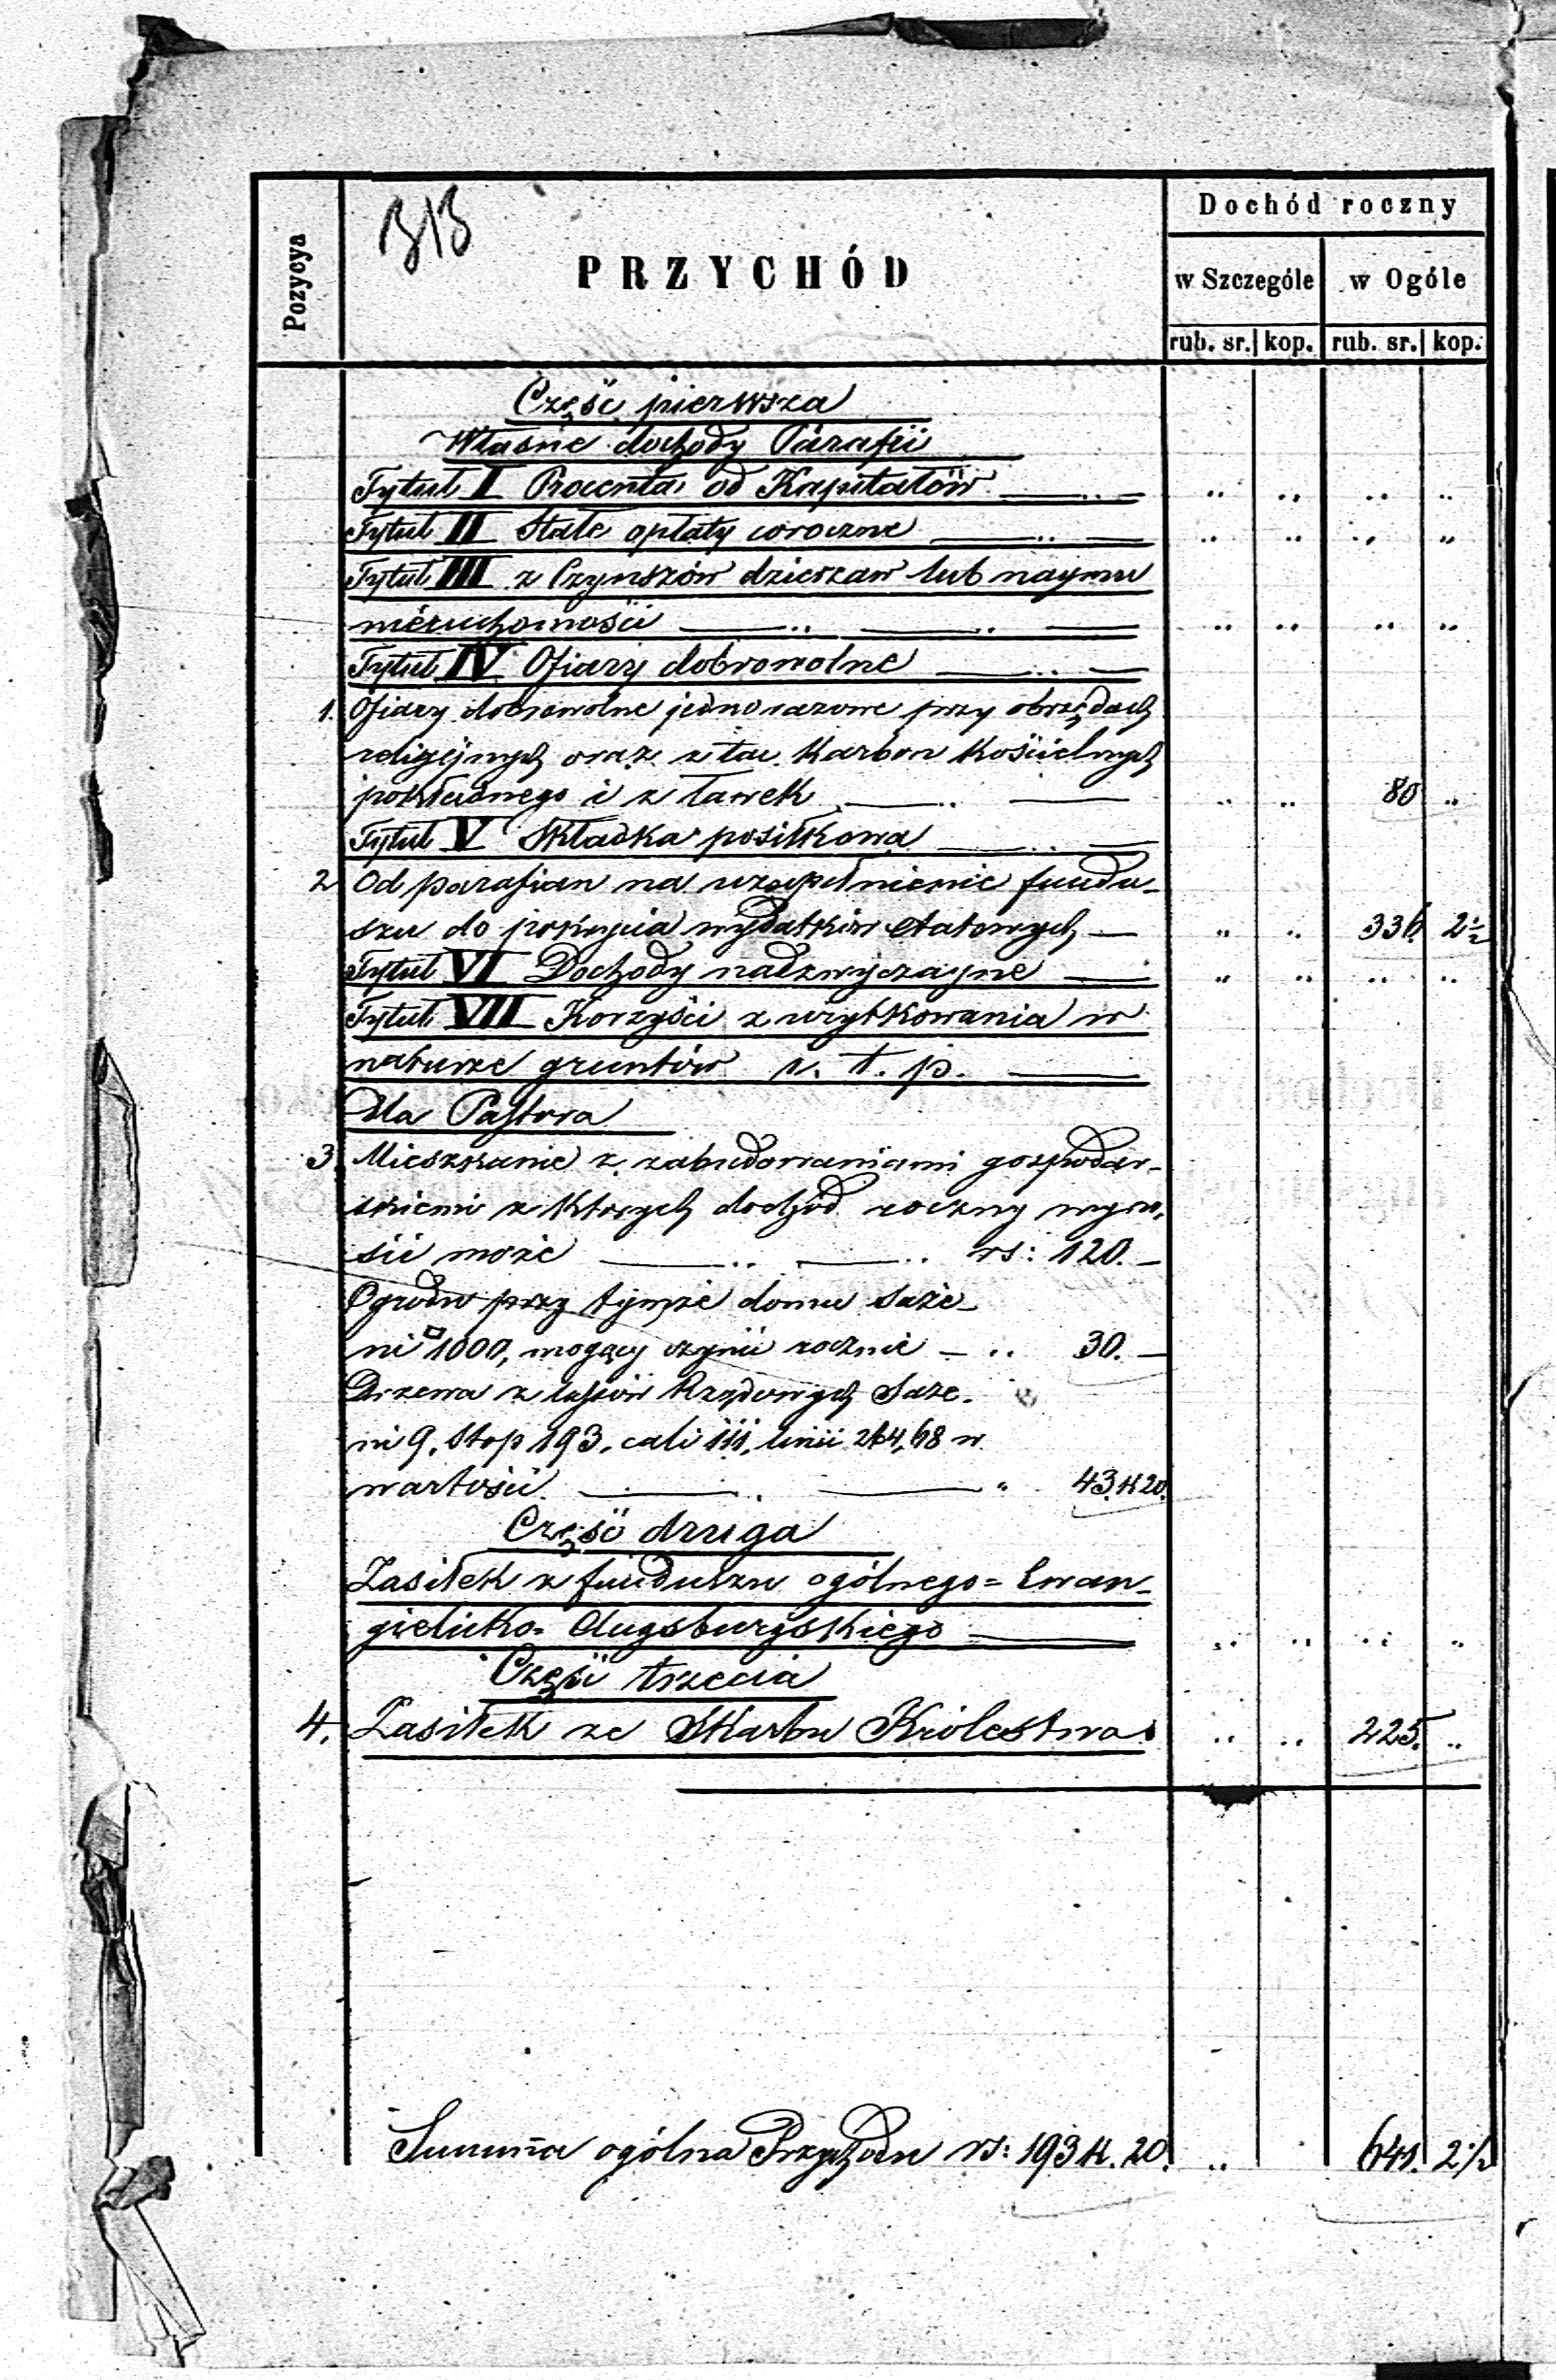 313
Pozycya
PRZYCHÓD
Dochód roczny
w Szczególe w Ogóle
rub. sr. kop. rub. sr. kop.
Część pierwsza
Własne dochody Parafii
Tytuł I Procenta od Kapitałów — „ — „ „ „ „
Tytuł II Stałe opłaty coroczne — „ — „ „ „ „
Tytuł III z Czynszów dzierzaw lub naymu
nieruchomości — „ — „ — „ „ „ „
Tytuł IV Ofiary dobrowolne — „ —
1. Ofiary dobrowolne jednorazowe przy obrzędach
religijnych oraz z tac Karbon Kościelnych
pokładnego i z ławek — „ — „ „ 80 „
Tytuł V Składka posiłkowa — „ —
2 Od parafian na uzupełnienie fundu-
szu do pokrycia wydatków etatowych — „ „ 336 2½
Tytuł VI Dochody nadzwyczayne — „ „ „ „
Tytuł VII Korzyści z użytkowania w
naturze gruntów i. t. p. —
Dla Pastora
3. Mieszkanie z zabudowaniami gospodar-
skiemi z których dochód roczny wyno-
sić może — „ — „ rs: 120. —
Ogrodu przy tymże domu Saże-
ni □ 1000, mogący czynić rocznie — „ 30. —
Drzewa z lasów Rządowych Saże-
ni 9, Stop 193, cali 111, linii 264,68 w
wartości — „ — „ 43. k 20.
Część druga
Zasiłek z funduszu ogólnego = Ewan-
gielicko = Augsburgskiego — „ „ „ „
Część trzecia
4. Zasiłek ze Skarbu Królestwa. „ „ 225. „
Summa ogólna Przychodu rs: 193 k. 20. „ 641. 2½